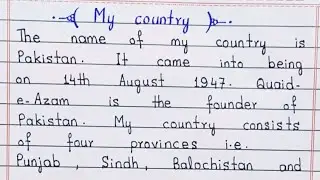 My country
The name of my country is
Pakistan. It came into being
on 14th August 1947. Quaid-
e-Azam is the founder of
Pakistan. My country consists
of four provinces i.e.
Punjab, Sindh, Balochistan and